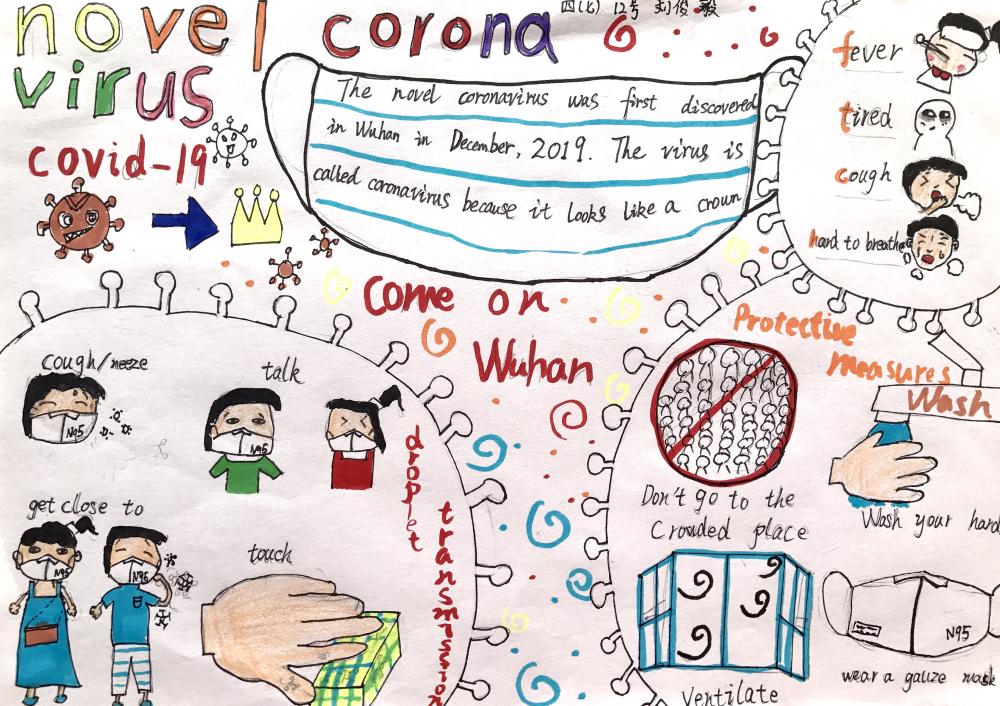 novel corona
virus
covid-19
四(七) 12号 刘俊毅
The novel coronavirus was first discovered
in Wuhan in December, 2019. The virus is
called coronavirus because it looks like a crown
fever
tired
cough
hard to breathe
Come on
Wuhan
cough/neeze
talk
N95
N95
get close to
touch
N95
N95
droplet
transmission
Protective
measures
Wash
Don't go to the
Crowded place
Wash your hand
N95
Ventilate
wear a gauze mask